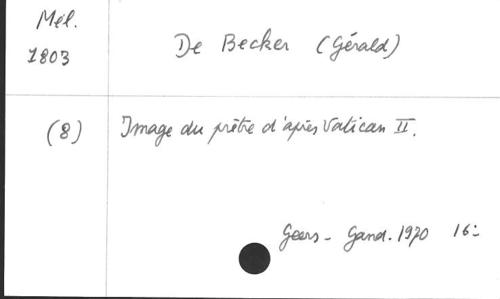 Mél.
1803
De Becker (Gérald)
(8)
Image du prêtre d'après Vatican II.
Geers - Gand. 1970 16: